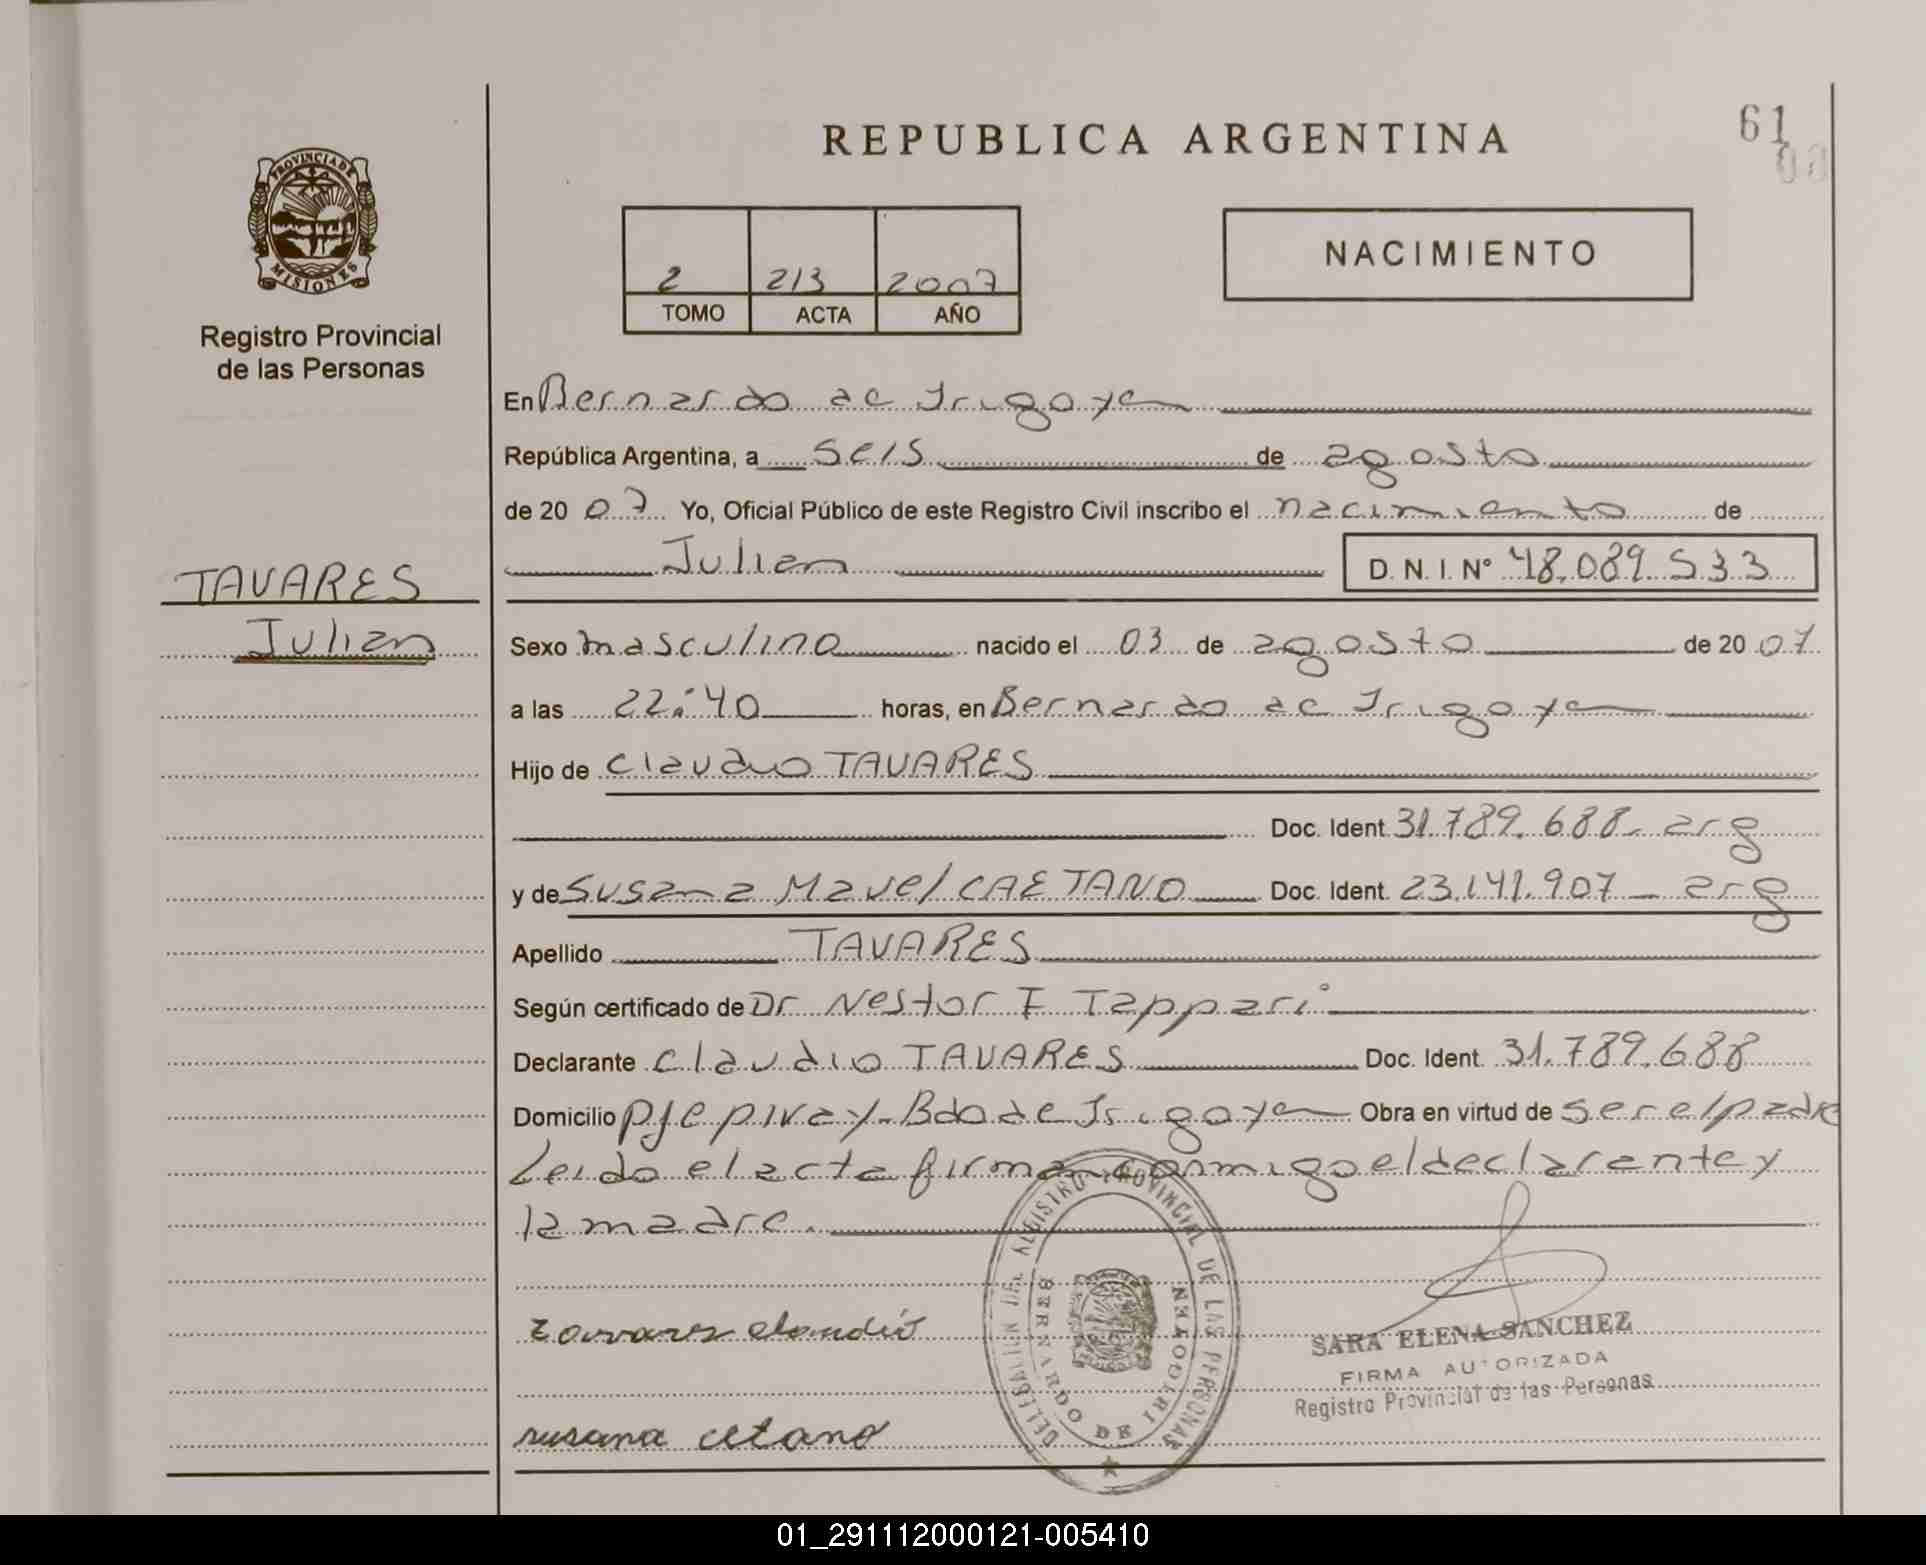 REPUBLICA ARGENTINA
61
PROVINCIA DE
MISIONES
Registro Provincial
de las Personas
2 213 2007
TOMO ACTA AÑO
NACIMIENTO
TAVARES
Julian
En Bernardo de Irigoyen
República Argentina, a seis de agosto
de 20 07 Yo, Oficial Público de este Registro Civil inscribo el nacimiento de
Julian D. N. I. N° 48.089.533
Sexo masculino nacido el 03 de agosto de 20 07
a las 22:40 horas, en Bernardo de Irigoyen
Hijo de Claudio TAVARES
Doc. Ident. 31.789.688 - arg
y de Susana Mavel CAETANO Doc. Ident. 23.141.907 - arg
Apellido TAVARES
Según certificado de Dr Nestor F Tappari
Declarante Claudio TAVARES Doc. Ident. 31.789.688
Domicilio Pje piray - Bdo de Irigoyen Obra en virtud de ser el padre
Leido el acta firman conmigo el declarante y
la madre.
DELEGACION DEL REGISTRO PROVINCIAL DE LAS PERSONAS
BERNARDO DE IRIGOYEN
SARA ELENA SANCHEZ
FIRMA AUTORIZADA
Registro Provincial de las Personas
tavares claudio
susana cetano
01_291112000121-005410